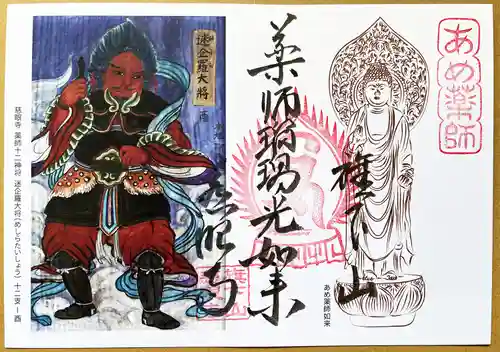 あめ薬師
薬師瑠璃光如来
慈眼寺
あめ薬師如来
迷企羅大将
酉
慈眼寺 薬師十二神将 迷企羅大将(めしらたいしょう) 十二支ー酉